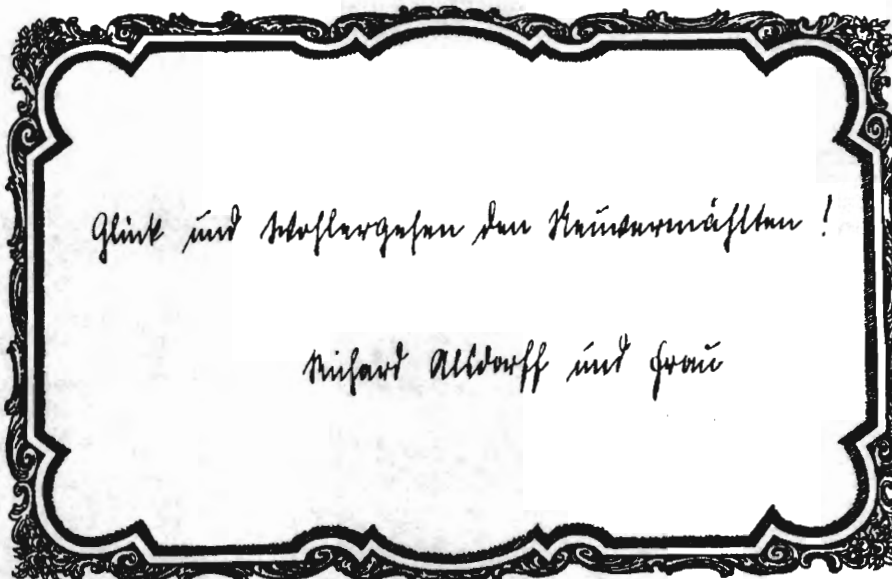 Glück und Wohlergehen den Neuvermählten!
Richard Alsdorff und Frau